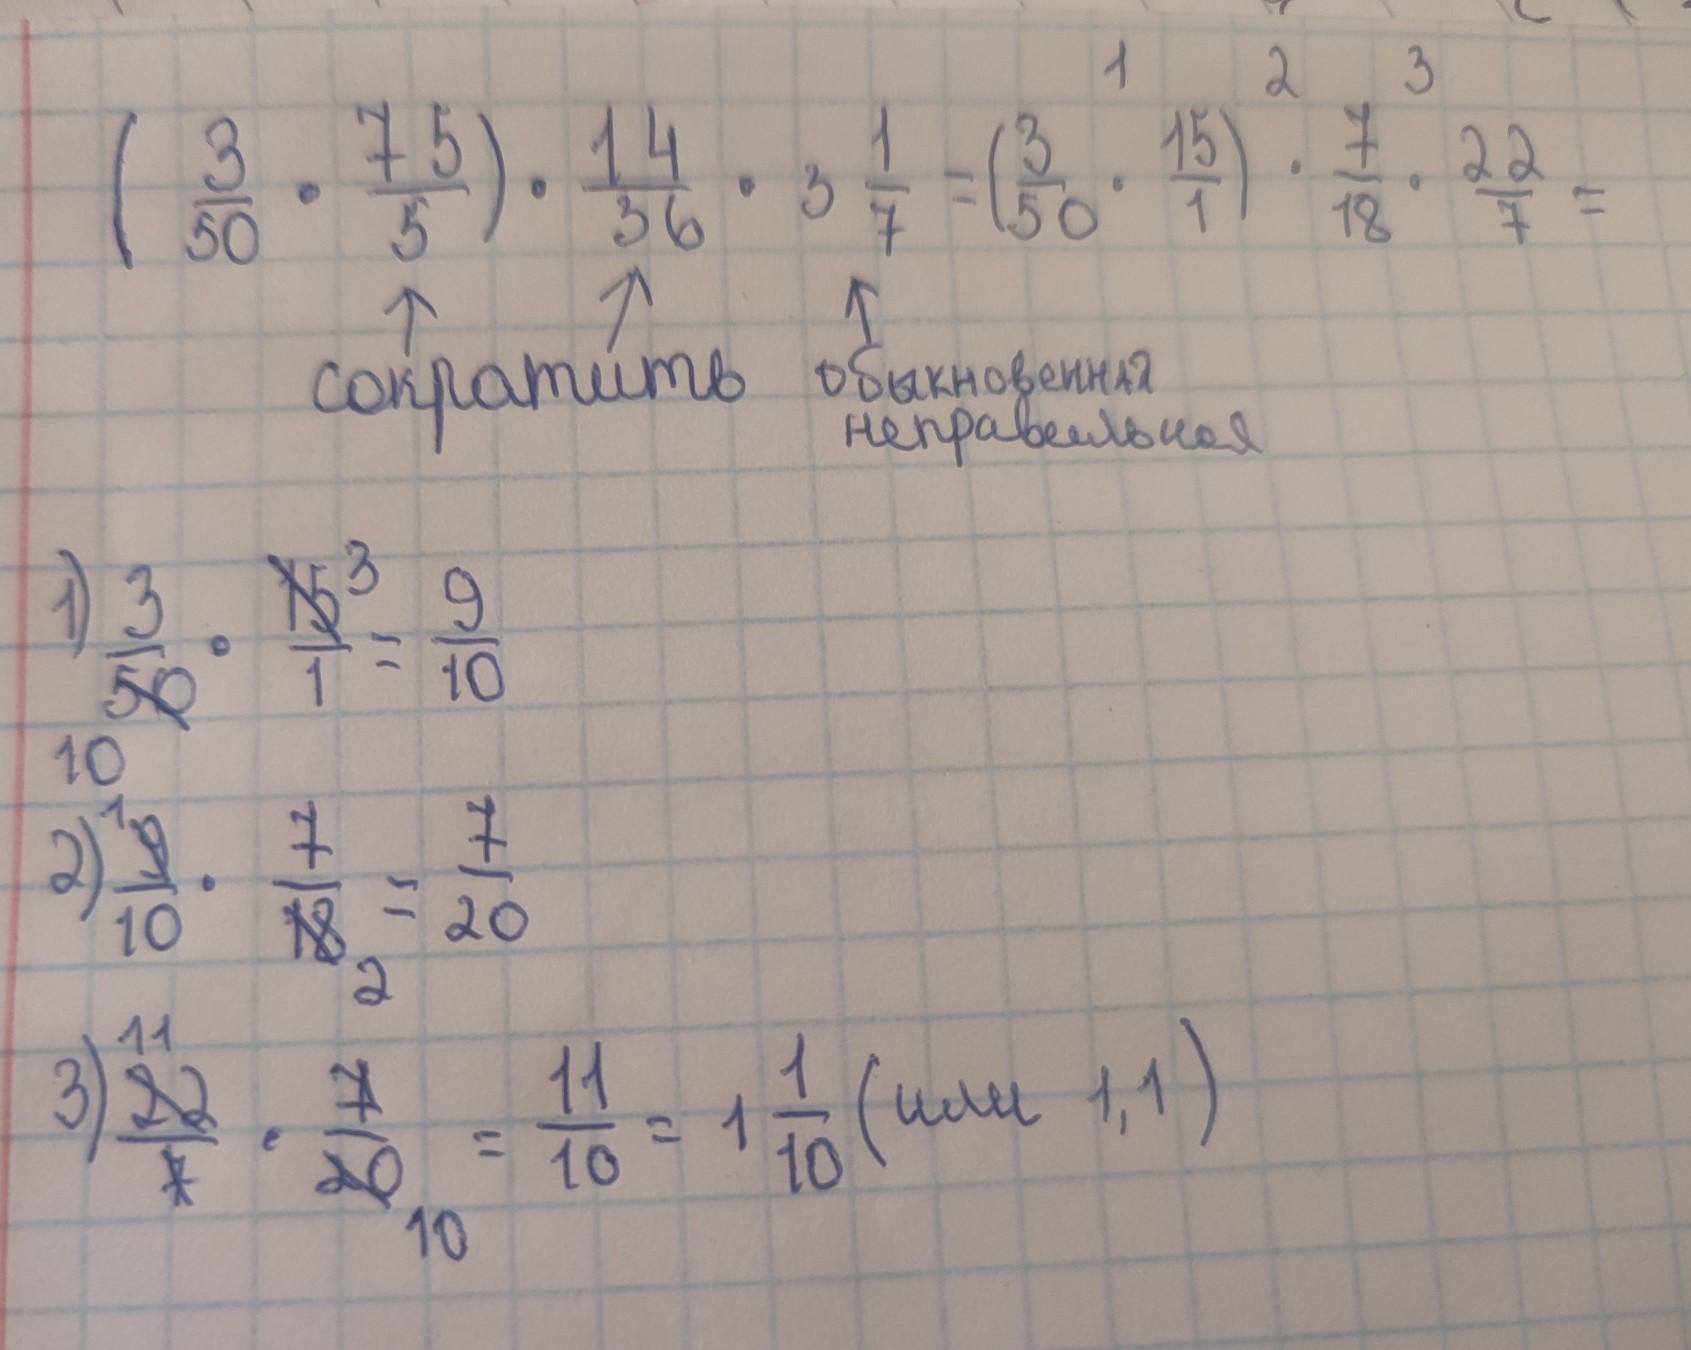 1 2 3
(3/50 · 75/5) · 14/36 · 3 1/7 = (3/50 · 15/1) · 7/18 · 22/7 =
сократить обыкновенная
неправильная
1) 3/50 · 15/1 = 9/10
3
10
2) 9/10 · 7/18 = 7/20
1
2
3) 22/7 · 7/20 = 11/10 = 1 1/10 (или 1,1)
11
10